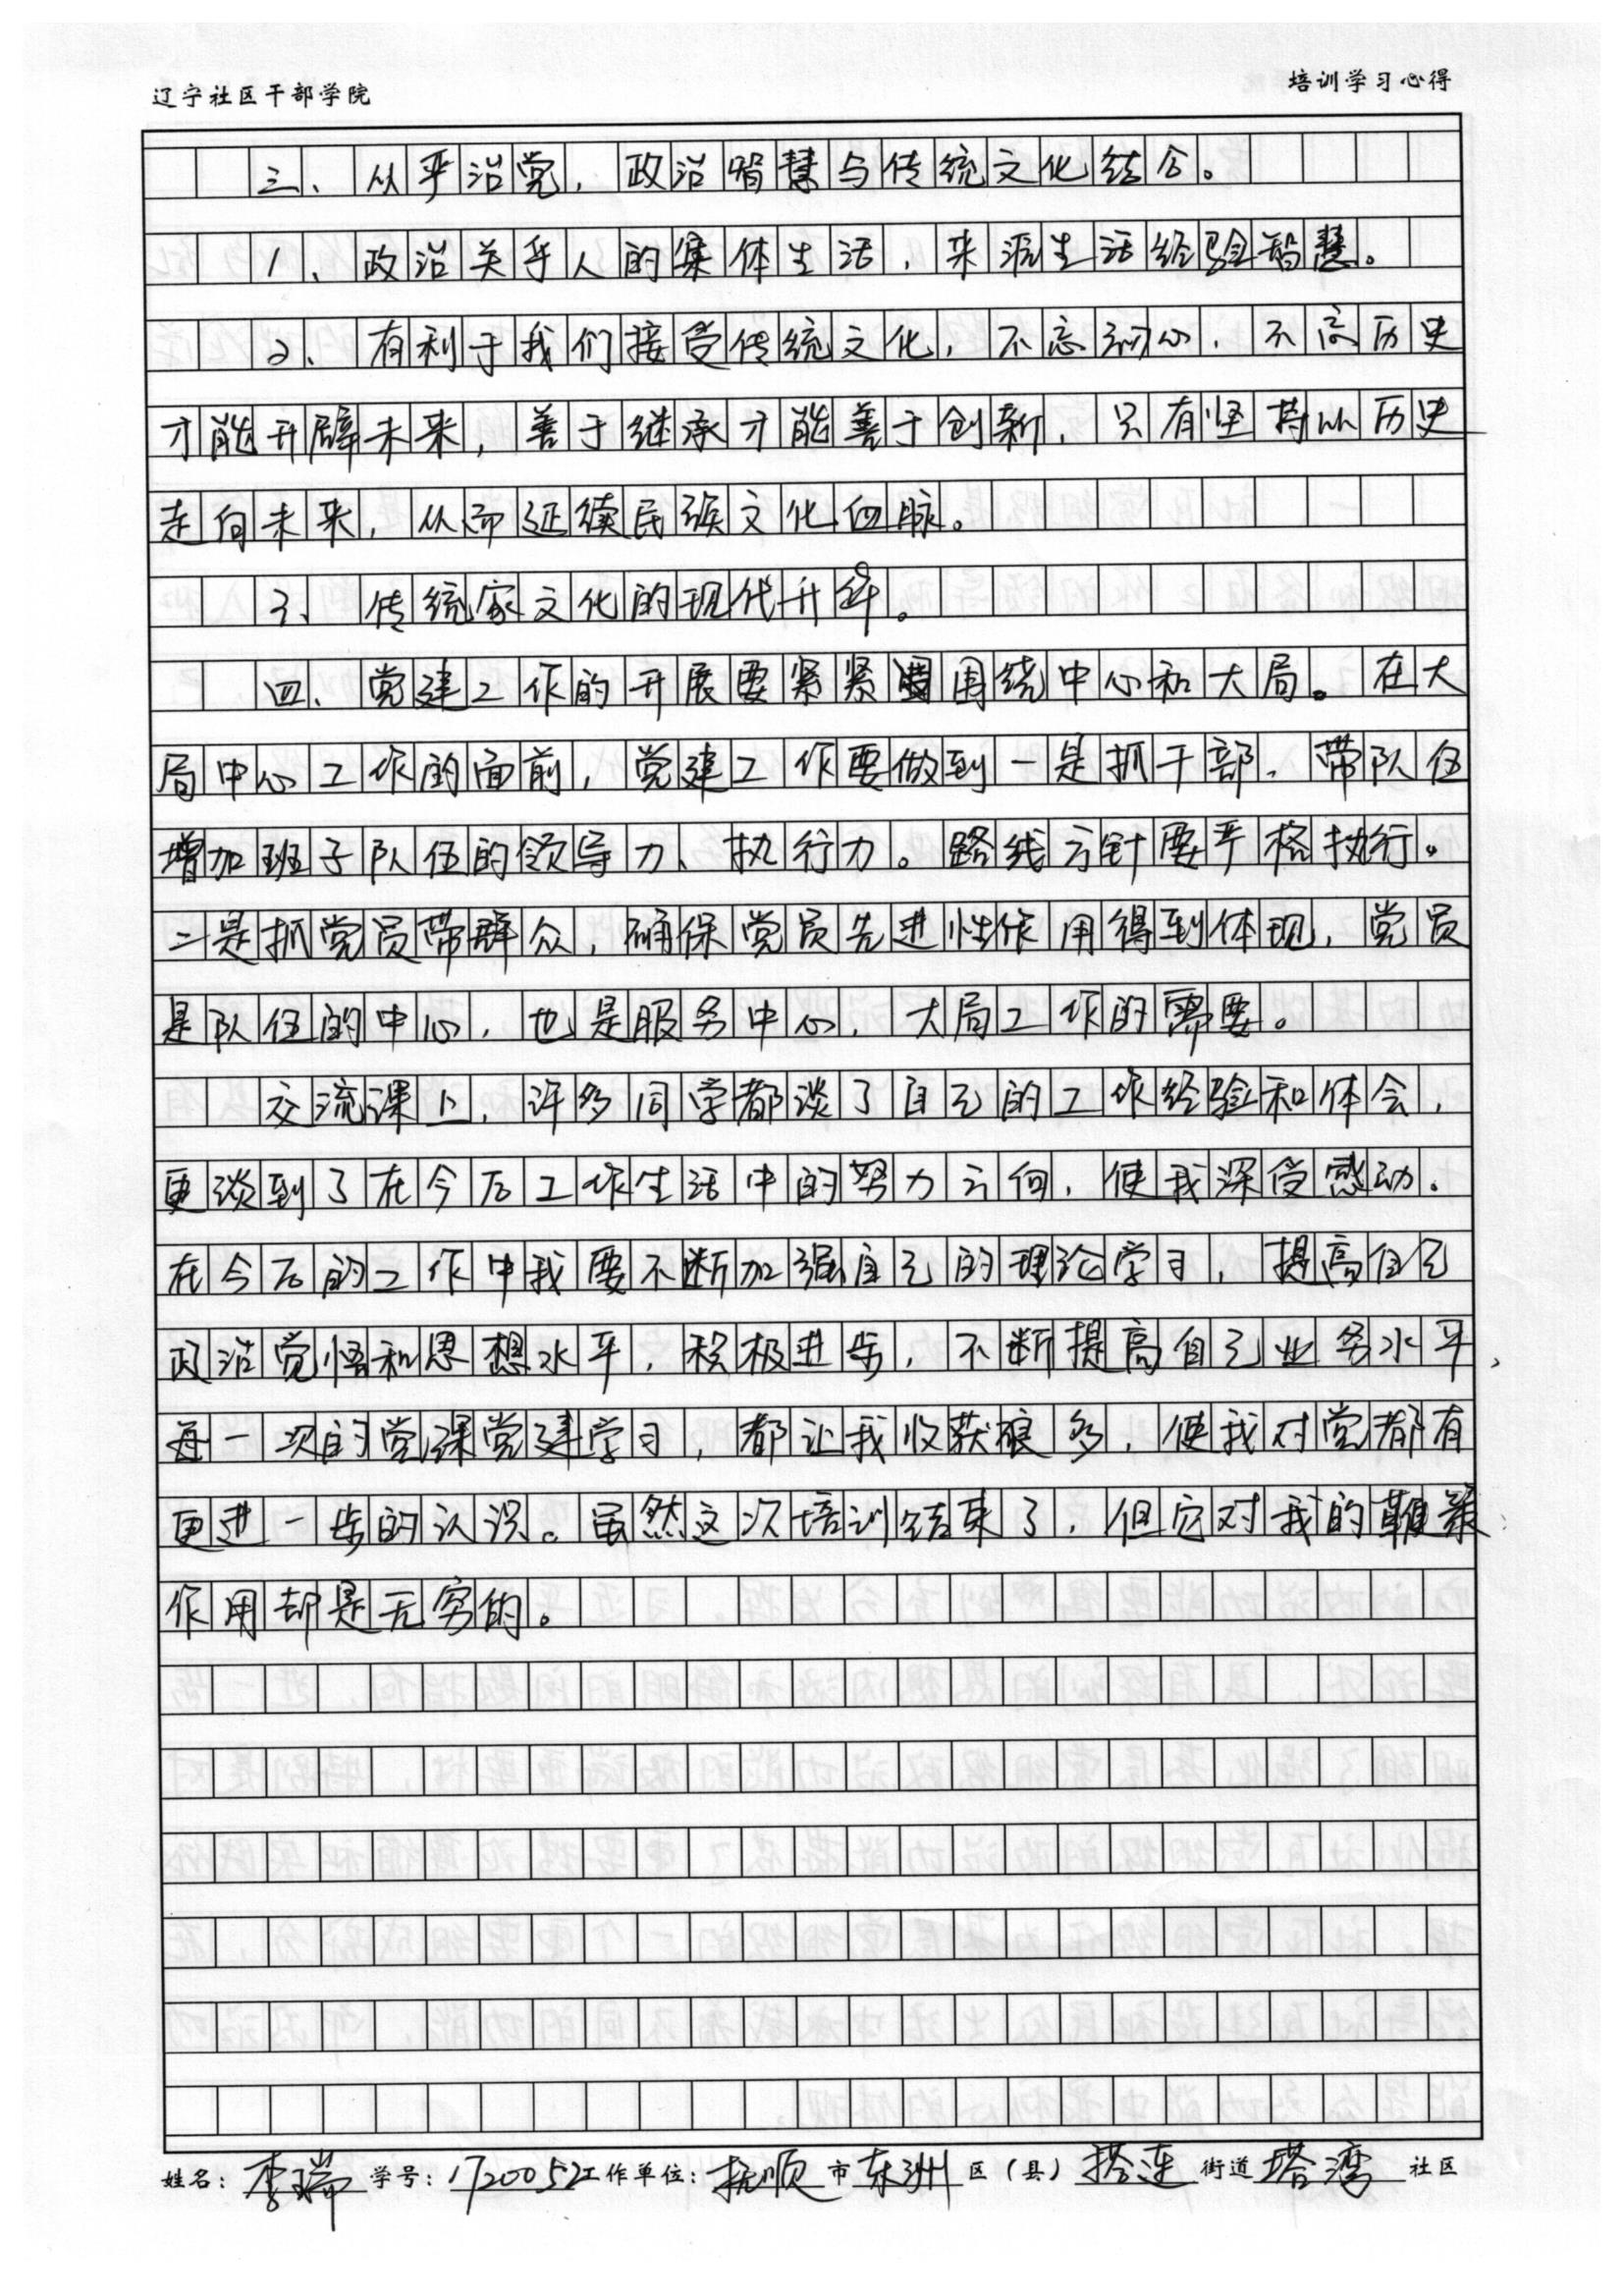 辽宁社区干部学院
培训学习心得
三、从严治党，政治智慧与传统文化结合。
1、政治关乎人的集体生活，来源生活经验智慧。
2、有利于我们接受传统文化，不忘初心，不忘历史
才能开辟未来，善于继承才能善于创新，只有坚持从历史
走向未来，从而延续民族文化血脉。
3、传统家文化的现代升华。
四、党建工作的开展要紧紧围绕中心和大局。在大
局中心工作的面前，党建工作要做到一是抓干部，带队伍
增加班子队伍的领导力、执行力。路线方针要严格执行。
二是抓党员带群众，确保党员先进性作用得到体现，党员
是队伍的中心，也是服务中心，大局工作的需要。
交流课上，许多同学都谈了自己的工作经验和体会，
更谈到了在今后工作生活中的努力方向，使我深受感动。
在今后的工作中我要不断加强自己的理论学习，提高自己
政治觉悟和思想水平，积极进步，不断提高自己业务水平，
每一次的党课党建学习，都让我收获很多，使我对党都有
更进一步的认识。虽然这次培训结束了，但它对我的鞭策
作用却是无穷的。
姓名：李瑞 学号：1720052 工作单位：抚顺 市 东洲 区（县） 搭连 街道 塔湾 社区